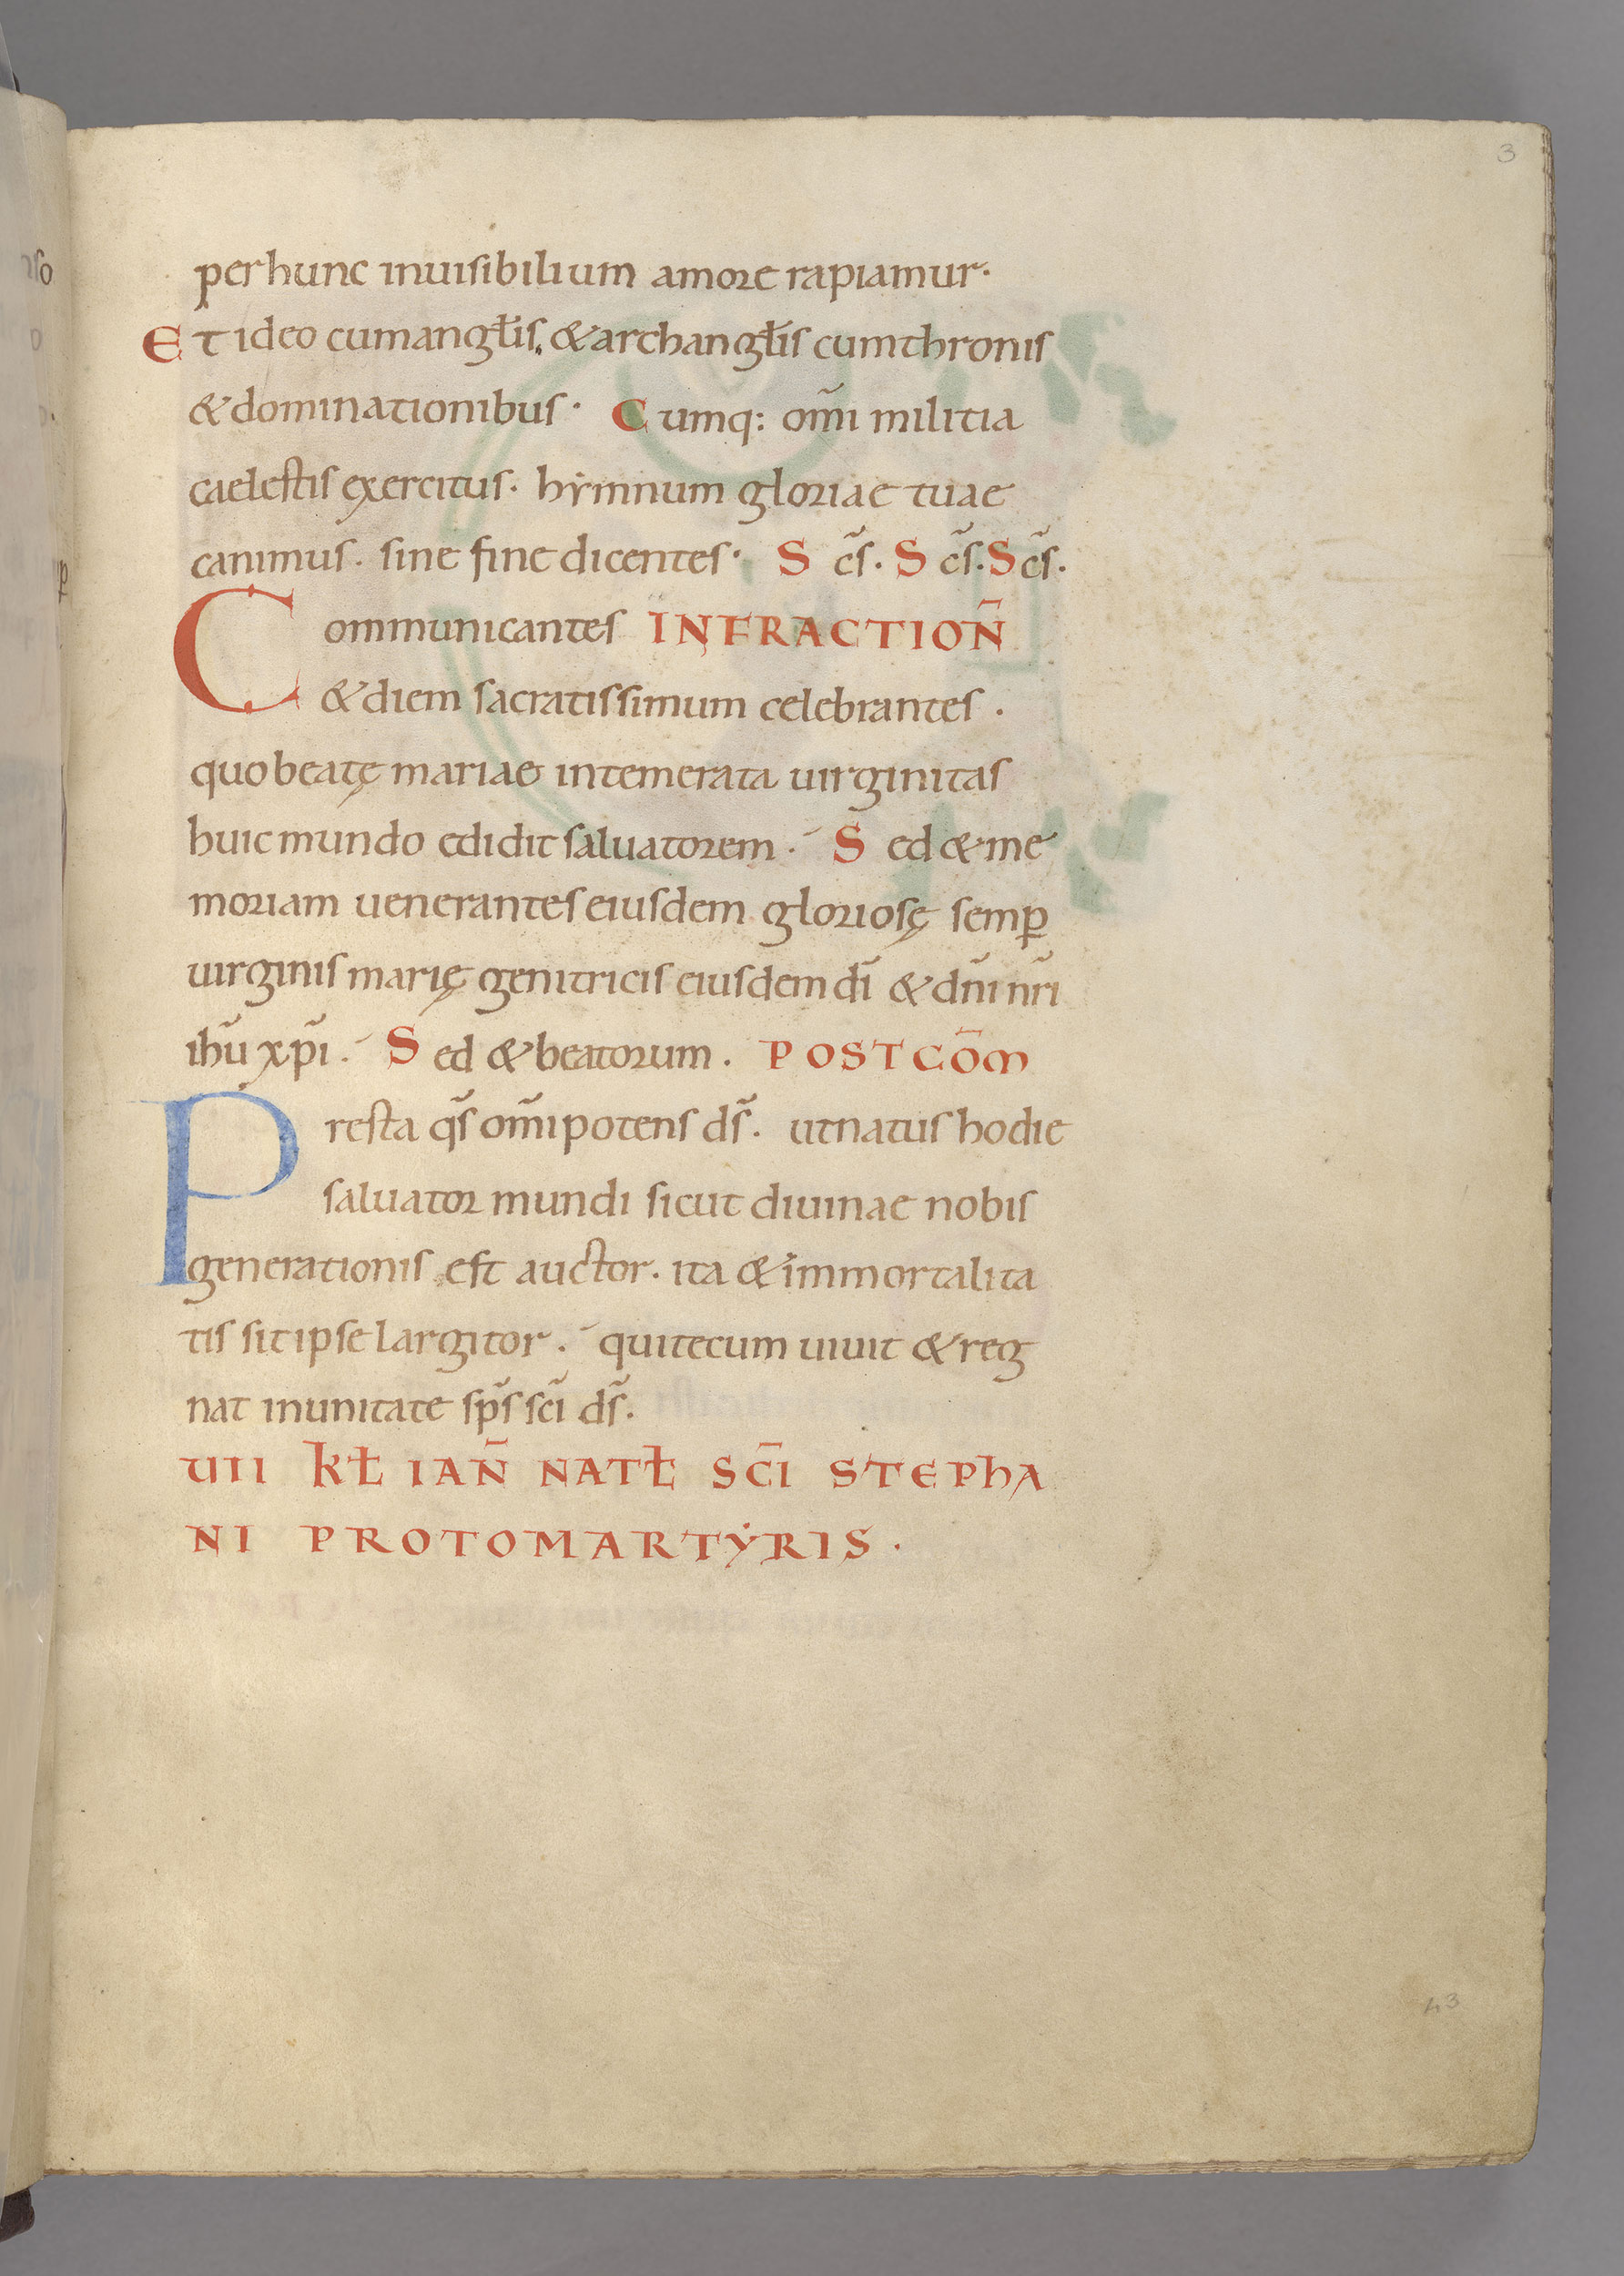 3
per hunc inuisibilium amore rapiamur·
Et ideo cum angƚis, & archangƚis cum thronis
& dominationibus· Cumq: om̃i militia
caelestis exercitus· hẏmnum gloriae tuae
canimus. sine fine dicentes· S cs̃. S cs̃. S cs̃.
Communicantes INFRACTION̄
& diem sacratissimum celebrantes.
quo beatę mariae intemerata uirginitas
huic mundo edidit saluatorem. Sed & me
moriam uenerantes eiusdem gloriosę semꝑ
uirginis marię genitricis eiusdem dĩ & dñi nr̃i
ihũ xp̃i. Sed & beatorum. POST COM̄
Presta qs̃ om̃ipotens ds̃. ut natus hodie
saluator mundi sicut diuinae nobis
generationis est auctor. ita & immortalita
tis sit ipse largitor. qui tecum uiuit & reg
nat in unitate sp̃s sc̃i ds̃.
UII KƗ IAN̄ NATƗ SC̄I STEPHA
NI PROTOMARTẎRIS.
43